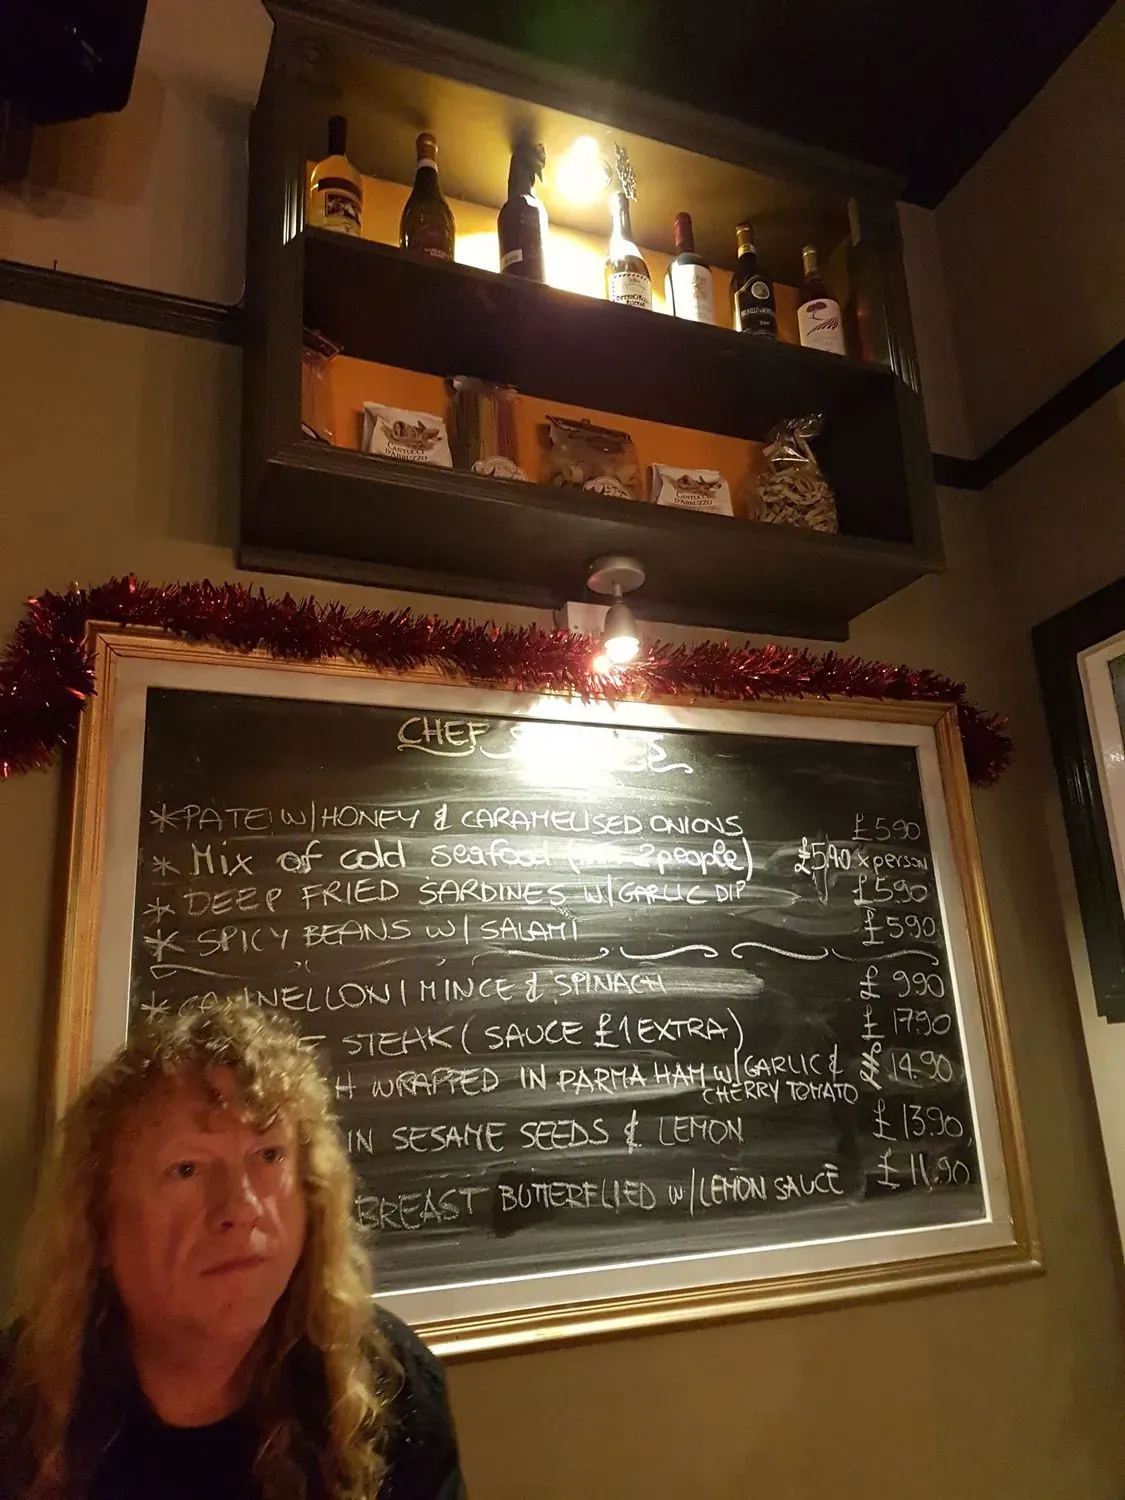 CANTUCCI
D'ABRUZZO
CANTUCCI
D'ABRUZZO
CHEF
*PATE W/HONEY & CARAMELISED ONIONS £5.90
* Mix of cold seafood (min 2 people) £5,90 x person
* DEEP FRIED SARDINES W/GARLIC DIP £5.90
* SPICY BEANS W/ SALAMI £5.90
* CANNELLONI MINCE & SPINACH 9.90
STEAK (SAUCE £1 EXTRA) 17.90
WRAPPED IN PARMA HAM W/GARLIC & 14.90
CHERRY TOMATO
IN SESAME SEEDS & LEMON £13.90
BREAST BUTTERFLIED W/LEMON SAUCE £11.90